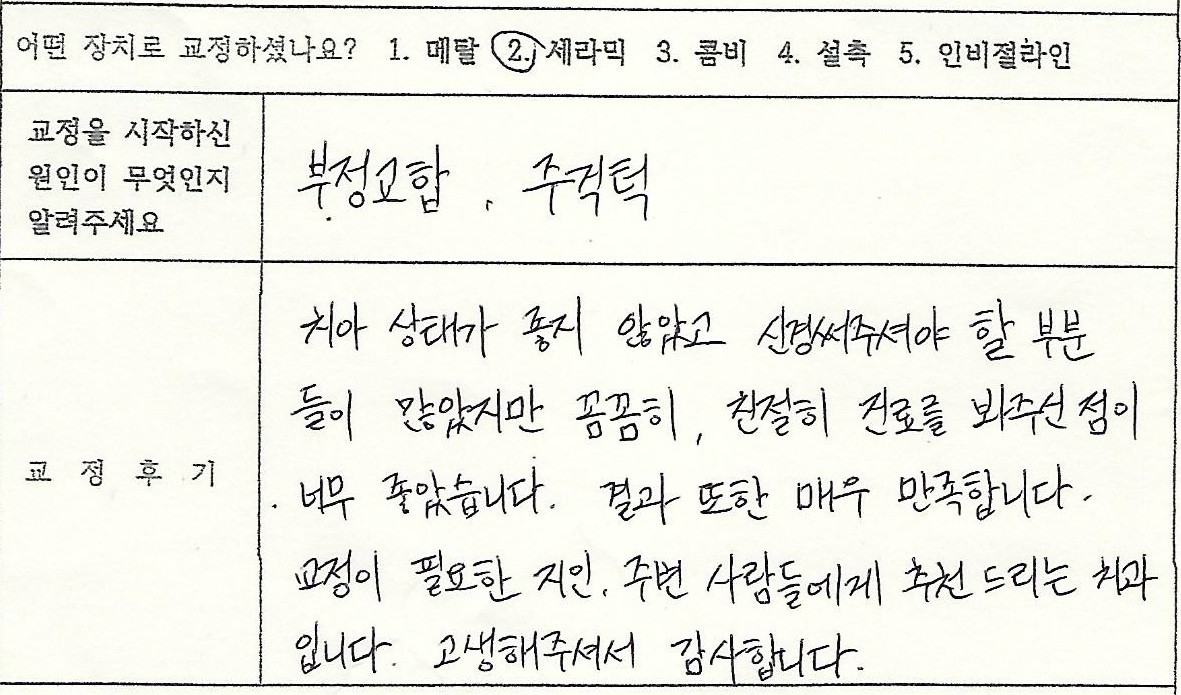 어떤 장치로 교정하셨나요? 1. 메탈 2. 세라믹 3. 콤비 4. 설측 5. 인비절라인
교정을 시작하신
원인이 무엇인지
알려주세요
부정교합, 주걱턱
교 정 후 기
치아 상태가 좋지 않았고 신경써주셔야 할 부분
들이 많았지만 꼼꼼히, 친절히 진료를 봐주신 점이
너무 좋았습니다. 결과 또한 매우 만족합니다.
교정이 필요한 지인, 주변 사람들에게 추천 드리는 치과
입니다. 고생해주셔서 감사합니다.